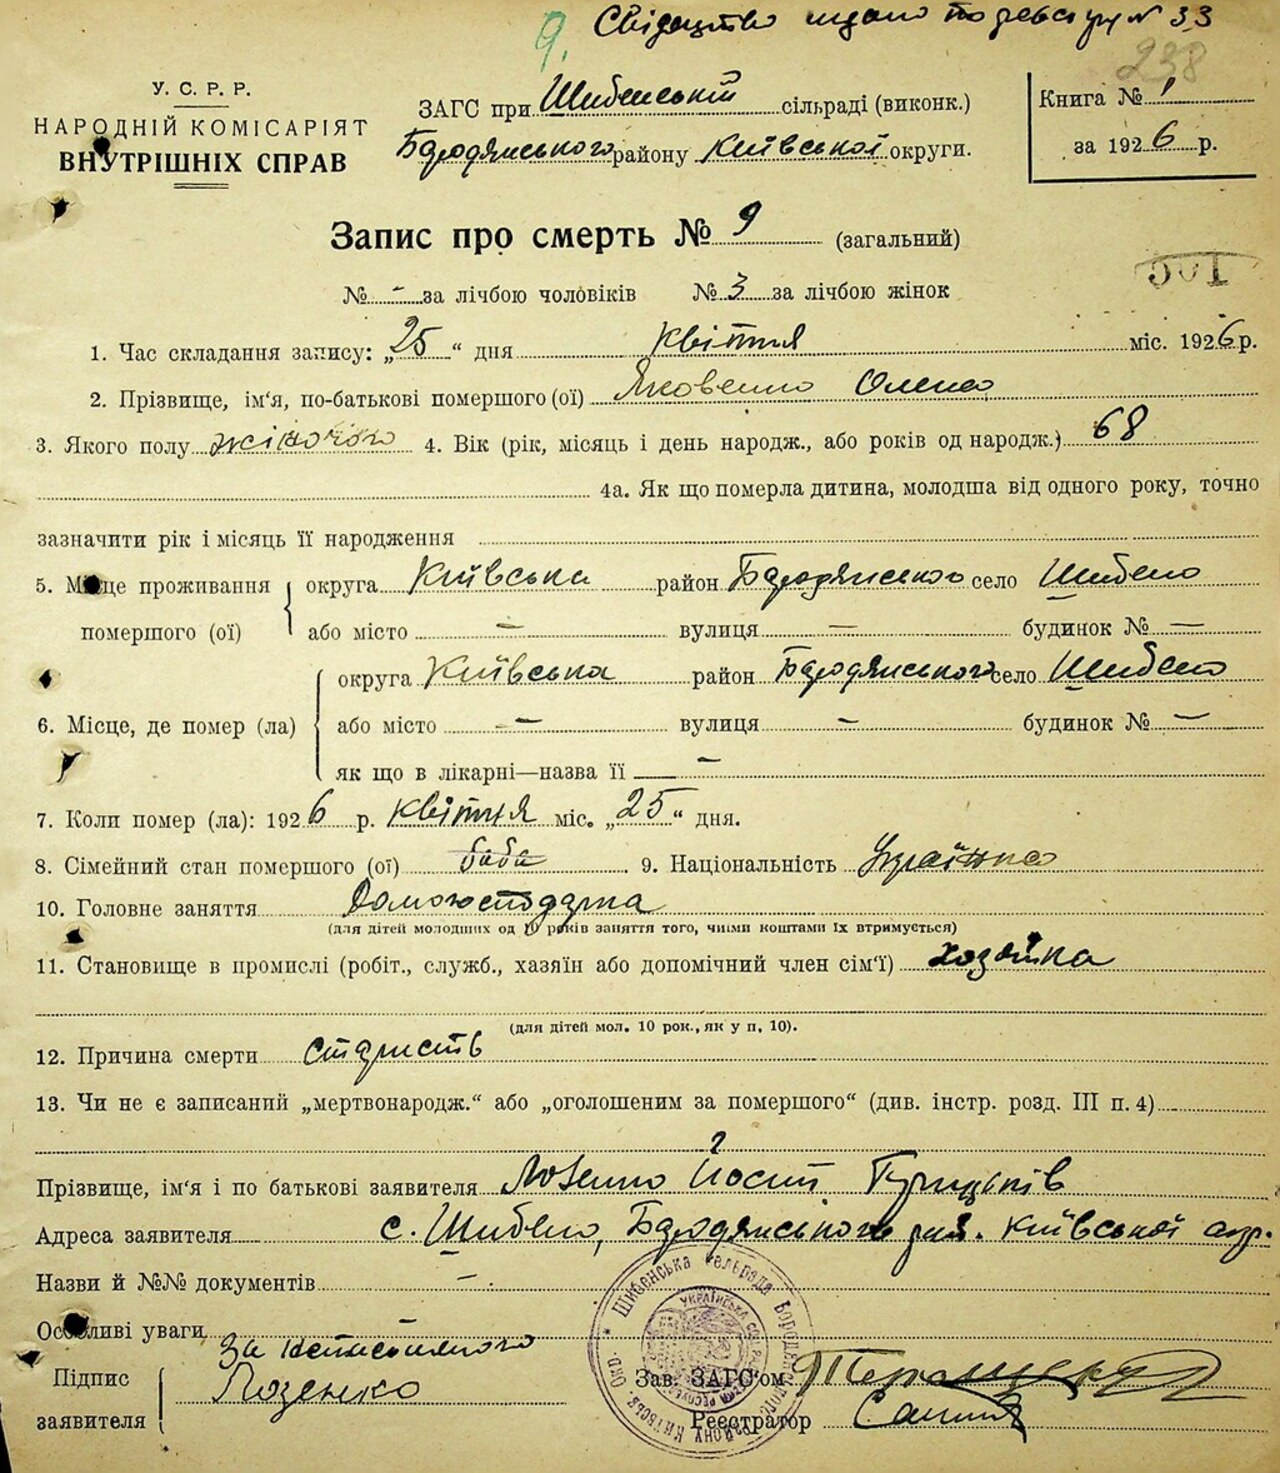 9. Свідоцтво видано по реєстру № 33
238
У. С. Р. Р.
НАРОДНІЙ КОМІСАРІЯТ
ВНУТРІШНІХ СПРАВ
ЗАГС при Шибенській сільраді (виконк.)
Бородянського району Київської округи.
Книга № 1
за 1926 р.
Запис про смерть № 9 (загальний)
501
№ - за лічбою чоловіків № 3 за лічбою жінок
1. Час складання запису: „25“ дня квітня міс. 1926 р.
2. Прізвище, ім'я, по-батькові помершого (ої) Яковенко Олена
3. Якого полу жіночого 4. Вік (рік, місяць і день народж., або років од народж.) 68
4а. Як що померла дитина, молодша від одного року, точно
зазначити рік і місяць її народження
5. Місце проживання помершого (ої) округа Київська район Бородянського село Шибено
або місто — вулиця — будинок № —
6. Місце, де помер (ла) округа Київська район Бородянського село Шибено
або місто — вулиця — будинок № —
як що в лікарні—назва її —
7. Коли помер (ла): 1926 р. квітня міс. „25“ дня.
8. Сімейний стан помершого (ої) баба 9. Національність Українка
10. Головне заняття Домогосподарка
(для дітей молодших од 10 років заняття того, чиїми коштами їх втримується)
11. Становище в промислі (робіт., служб., хазяїн або допомічний член сім'ї) хозяйка
(для дітей мол. 10 рок., як у п. 10).
12. Причина смерти старість
13. Чи не є записаний „мертвонародж.“ або „оголошеним за помершого“ (див. інстр. розд. III п. 4)
Прізвище, ім'я і по батькові заявителя Лозенко Йосип
Адреса заявителя с. Шибено, Бородянського рай. Київської окр.
Назви й №№ документів —.
Особливі уваги
Підпис заявителя За неписьменного
Лозенко
Зав. ЗАГС'ом
Реєстратор
Шибенська сельрада Бородянського району Київськ. Окр.